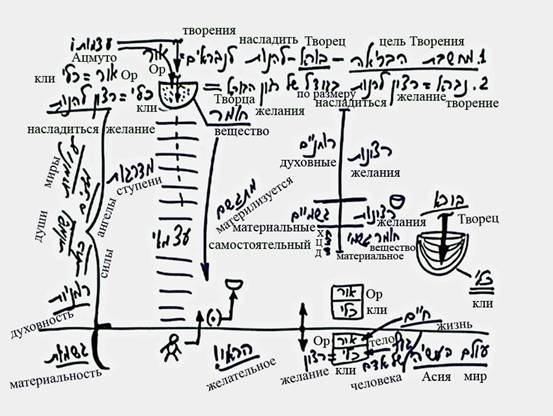 עצמותו
творения
насладить Творец
цель Творения
Ацмуто
אור
1. מחשבת הבריאה - בורא - להנות לנבראים =
Ор
кли
כלי = אור
Ор
кли
по размеру
насладиться желание творение
כלי = רצון להנות
2. נברא = רצון להנות בגודל של רצון הבורא =
Творца
желания
насладиться желание
חומר
вещество
миры
עולמות
מדרגות
ступени
רוחניים
духовные
רצונות
желания
מתגשם
материлизуется
души
נשמות
ангелы
силы
עצמאי
самостоятельный
גשמיים
материальные
רצונות
желания
Х
Ц
Д
חומר גשמי
вещество
материальное
בורא
Творец
כלי
кли
רוחניות
духовность
אור
Ор
כלי
кли
חיים
жизнь
גשמיות
материальность
הרצוי
желательное
Ор
אור
тело
גוף
желание
רצון =
כלי
кли
של אדם
человека
עולם העשיה
Асия мир